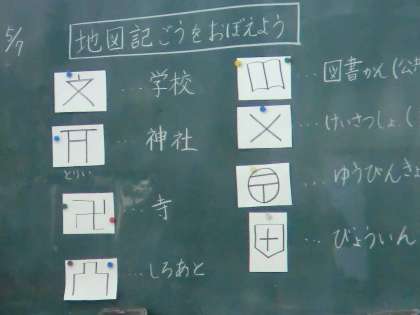 5/7
地図記ごうをおぼえよう
文 … 学校
… 神社
とりい
卍 … 寺
… しろあと
… 図書かん(公共
… けいさつしょ(
〒 … ゆうびんきょ
… びょういん